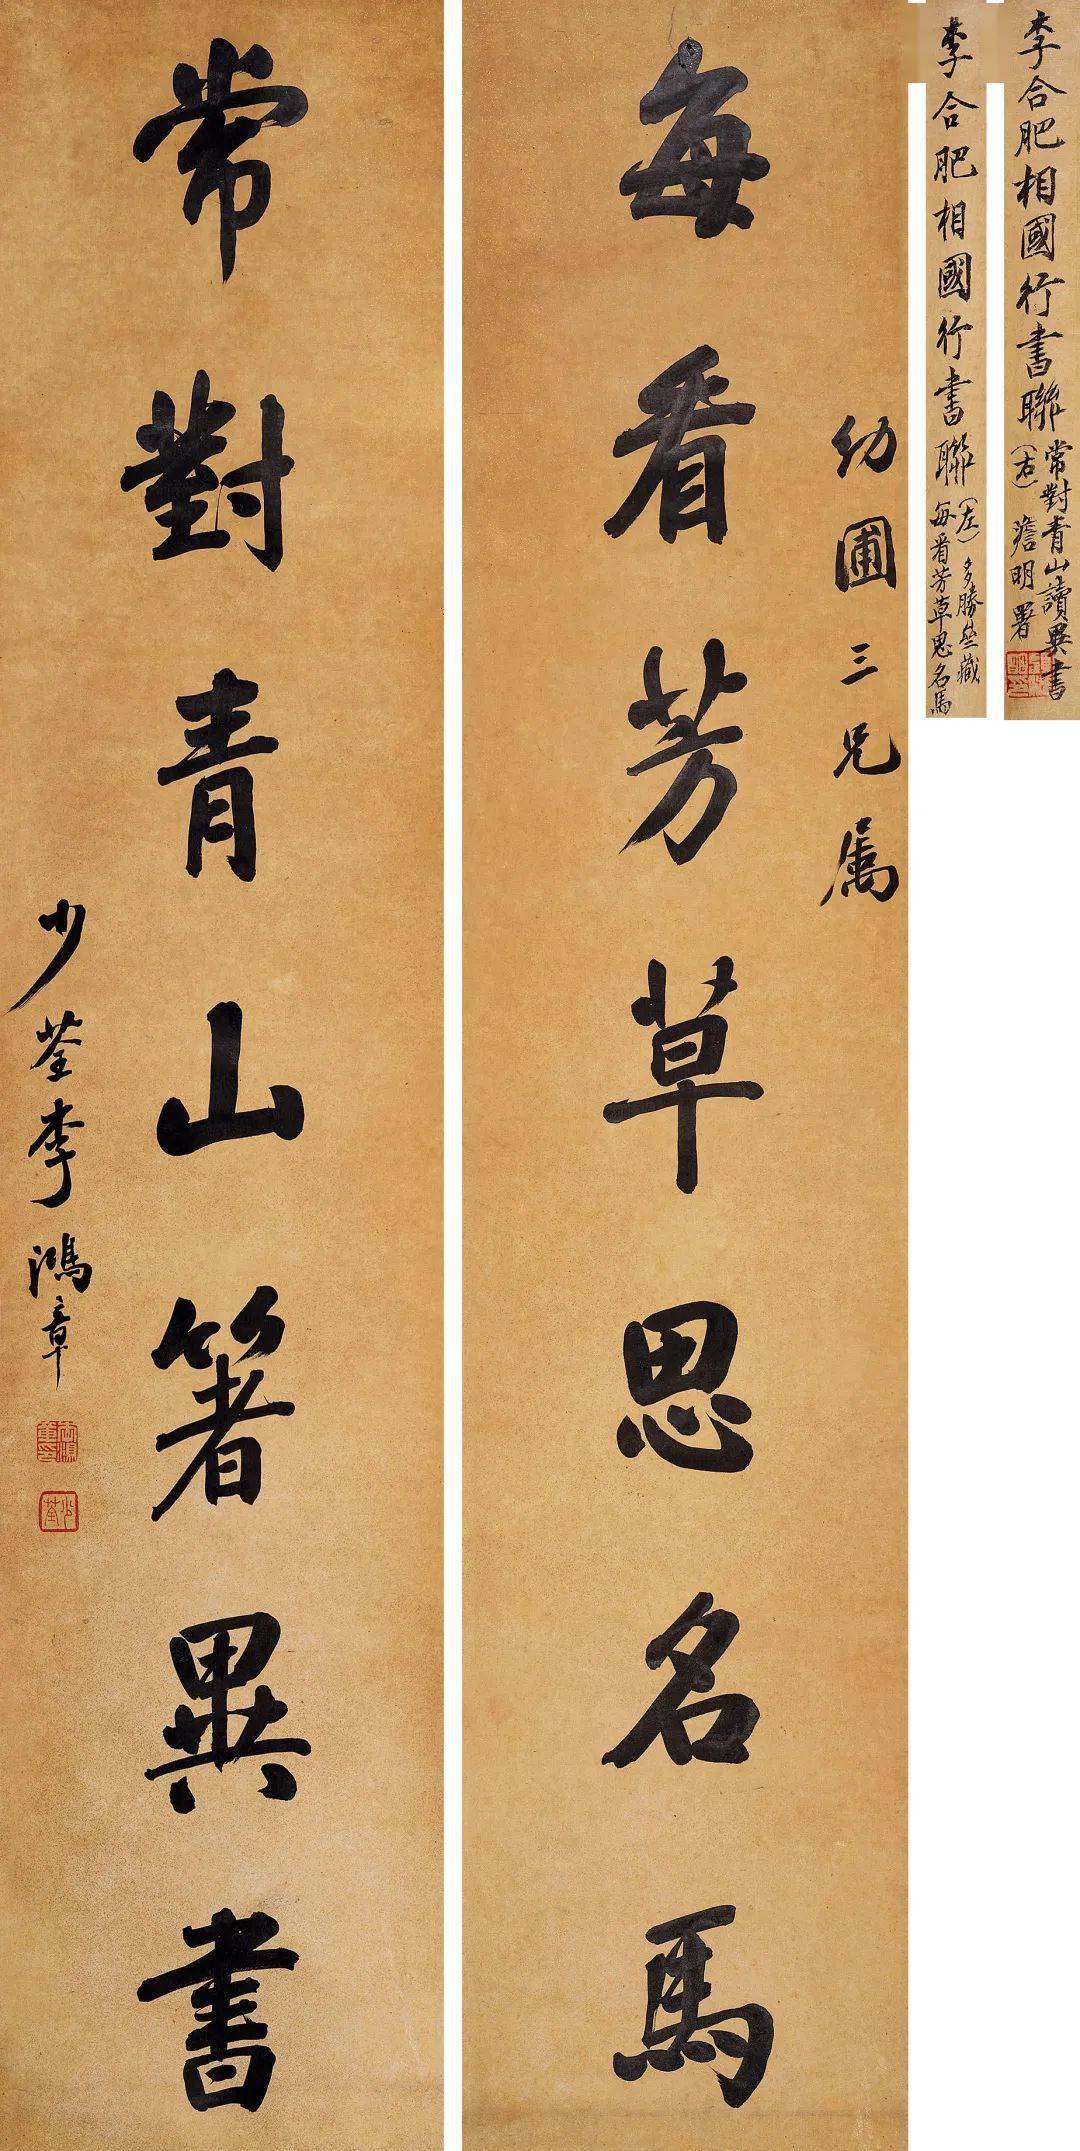 李合肥相國行書聯
常對青山讀異書
（右）
澹明署
李合肥相國行書聯
（左）
多勝齋藏
每看芳草思名馬
幼圃三兄屬
每看芳草思名馬
常對青山箸異書
少荃李鴻章
少荃